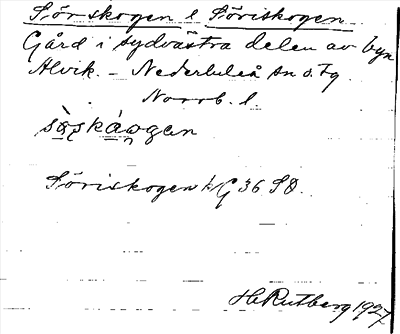 Sörskogen l Söriskogen
Gård i sydvästra delen av byn
Alvik. – Nederluleå sn o. tg
Norrb. l.
Söriskogen k G 36 SO.
H. Rutberg 1927